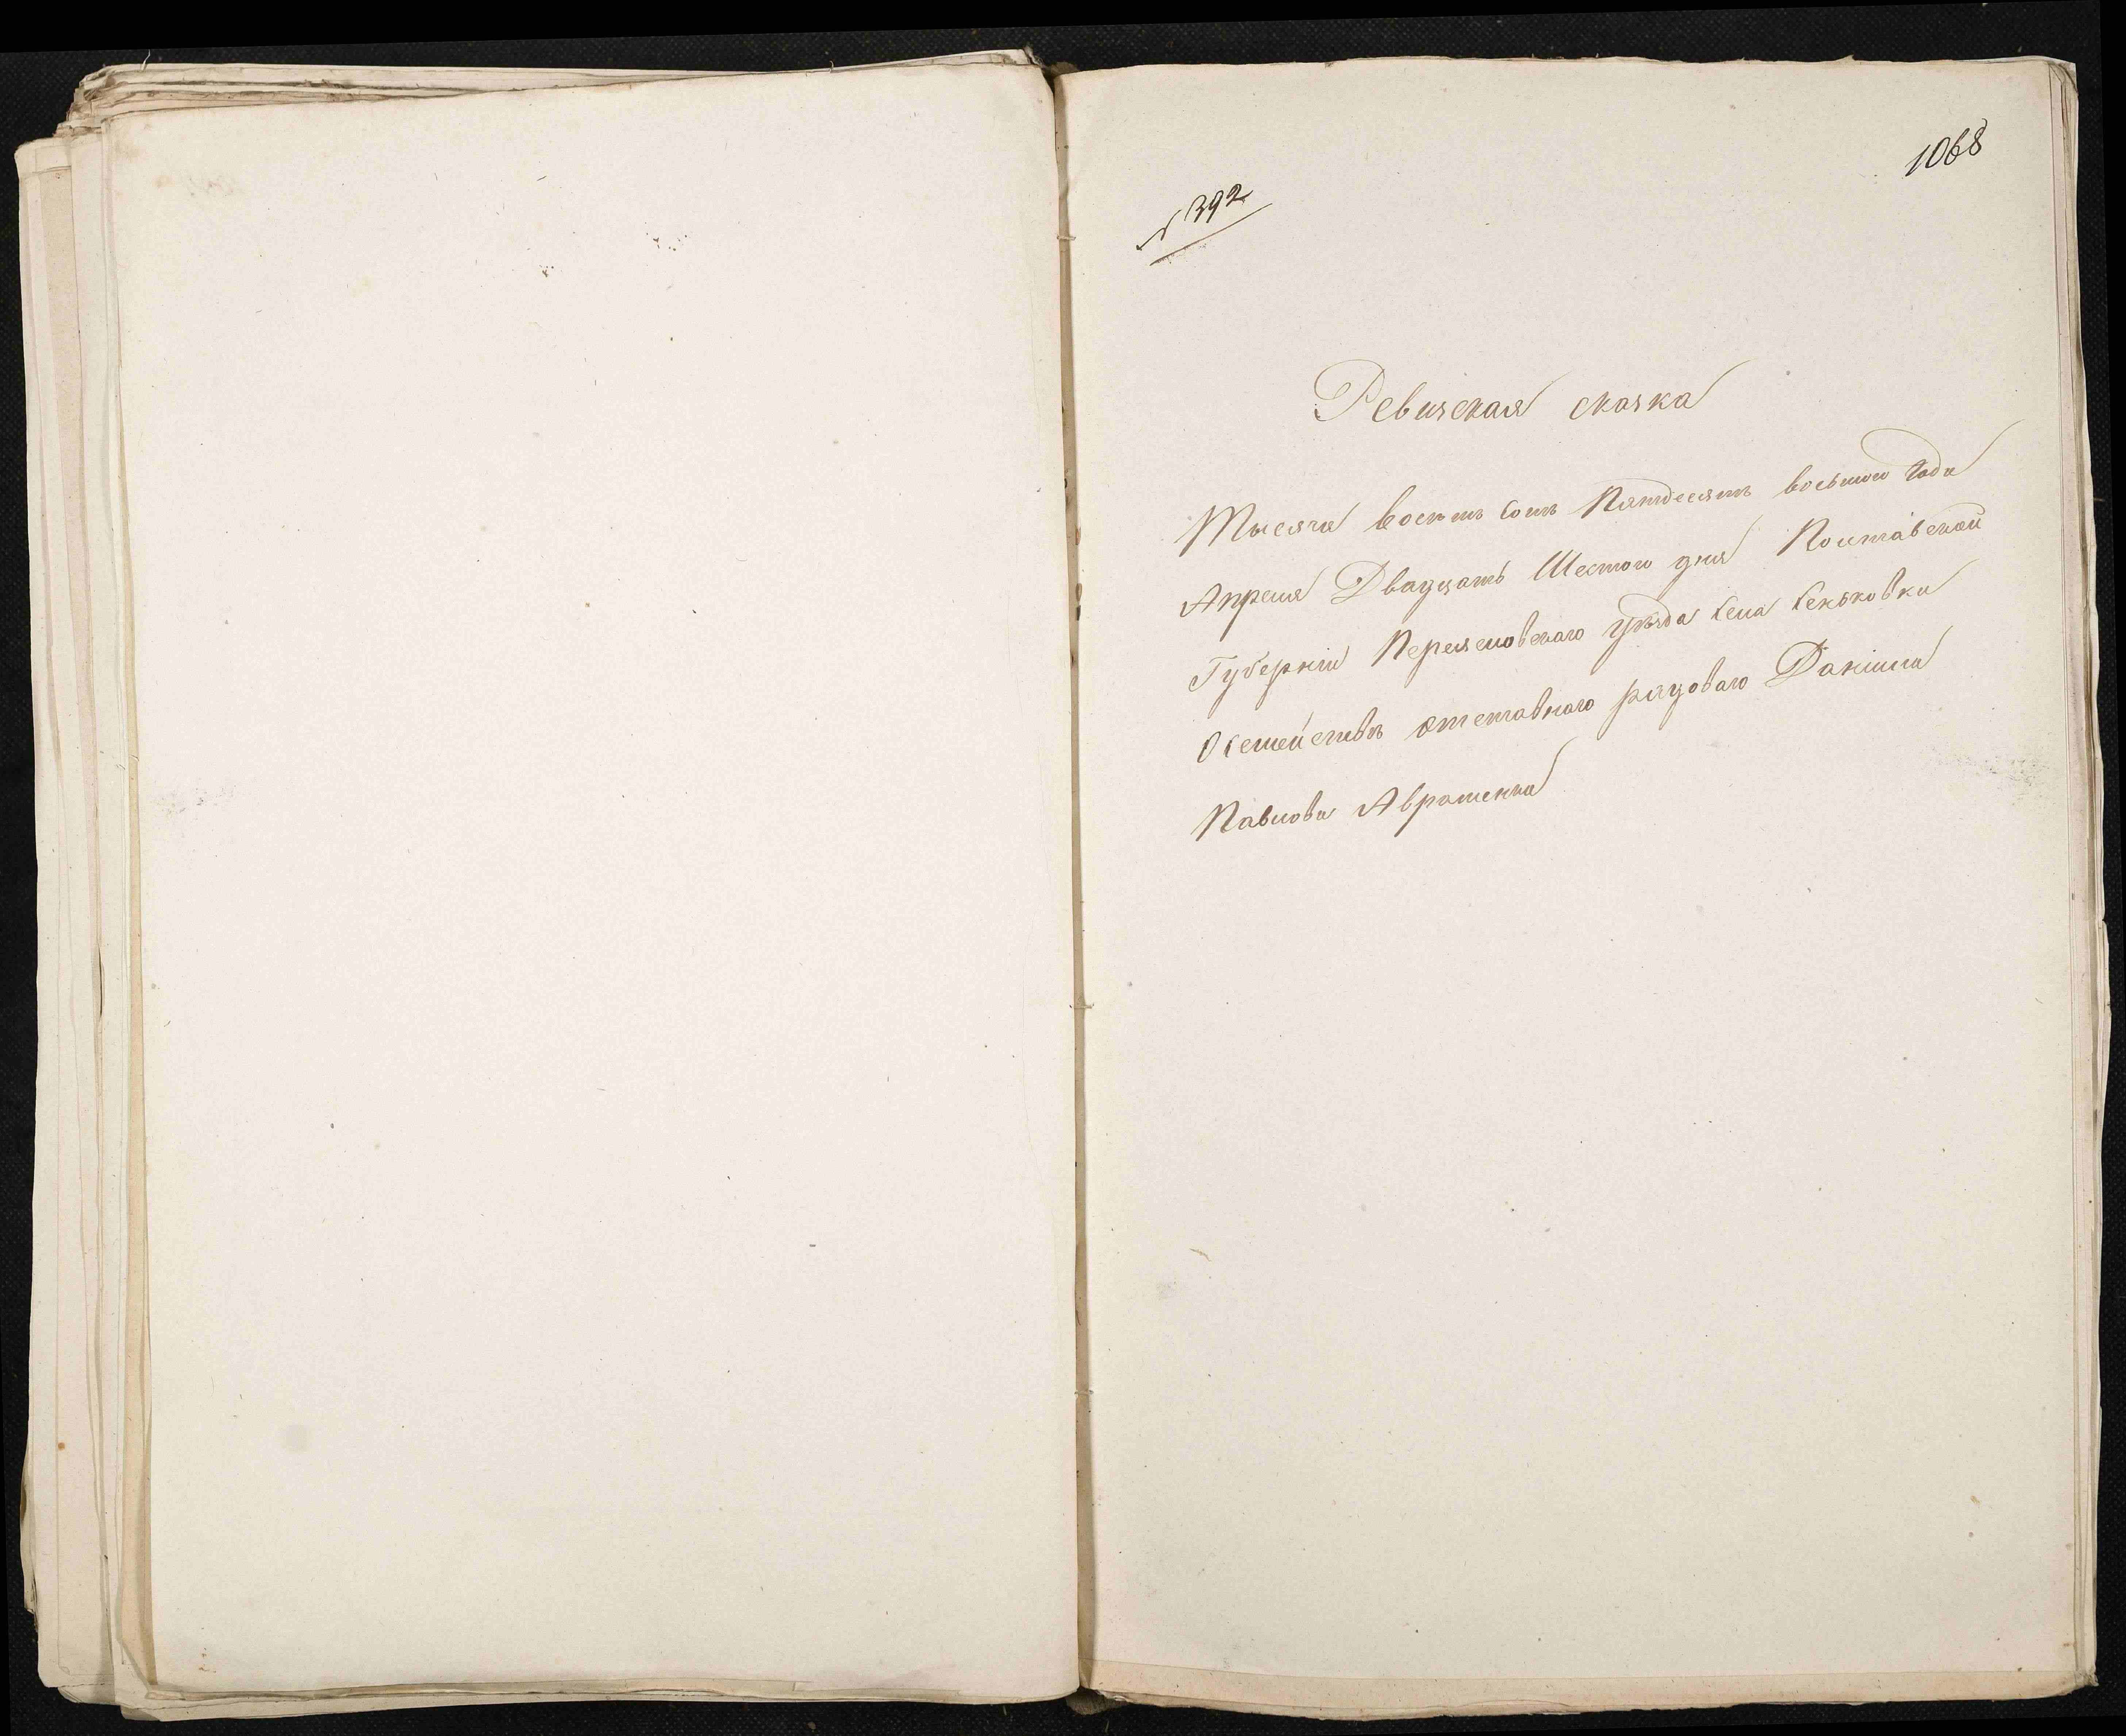 1068
№ 392
Ревизская сказка
Тысяча восемь сотъ Пятдесятъ восьмого Года
Апреля Двадцать Шестого дня Полтавской
Губерніи Переясловскаго уѣзда села Сеньковки
О семействѣ отставнаго рядоваго Даніила
Павлова Авраменка